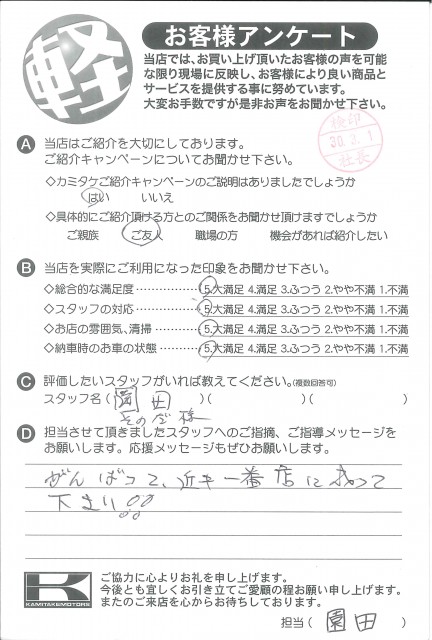 軽
お客様アンケート
当店では、お買い上げ頂いたお客様の声を可能
な限り現場に反映し、お客様により良い商品と
サービスを提供する事に努めています。
大変お手数ですが是非お声をお聞かせ下さい。
検印
30.3.1
社長
A 当店はご紹介を大切にしております。
ご紹介キャンペーンについてお聞かせ下さい。
◇カミタケご紹介キャンペーンのご説明はありましたでしょうか
はい いいえ
◇具体的にご紹介頂ける方とのご関係をお聞かせ頂けますでしょうか
ご親族 ご友人 職場の方 機会があれば紹介したい
B 当店を実際にご利用になった印象をお聞かせ下さい。
◇総合的な満足度…………5.大満足 4.満足 3.ふつう 2.やや不満 1.不満
◇スタッフの対応…………5.大満足 4.満足 3.ふつう 2.やや不満 1.不満
◇お店の雰囲気、清掃……5.大満足 4.満足 3.ふつう 2.やや不満 1.不満
◇納車時のお車の状態……5.大満足 4.満足 3.ふつう 2.やや不満 1.不満
C 評価したいスタッフがいれば教えてください。(複数回答可)
スタッフ名( 園田 )( )( )
そのだ様
D 担当させて頂きましたスタッフへのご指摘、ご指導メッセージを
お願いします。応援メッセージもぜひお願いします。
がんばって、近キ一番店に成って
下さい!!
K
KAMITAKEMOTORS
ご協力に心よりお礼を申し上げます。
今後とも宜しくお引き立てご愛顧の程お願い申し上げます。
またのご来店を心からお待ちしております。
担当( 園田 )